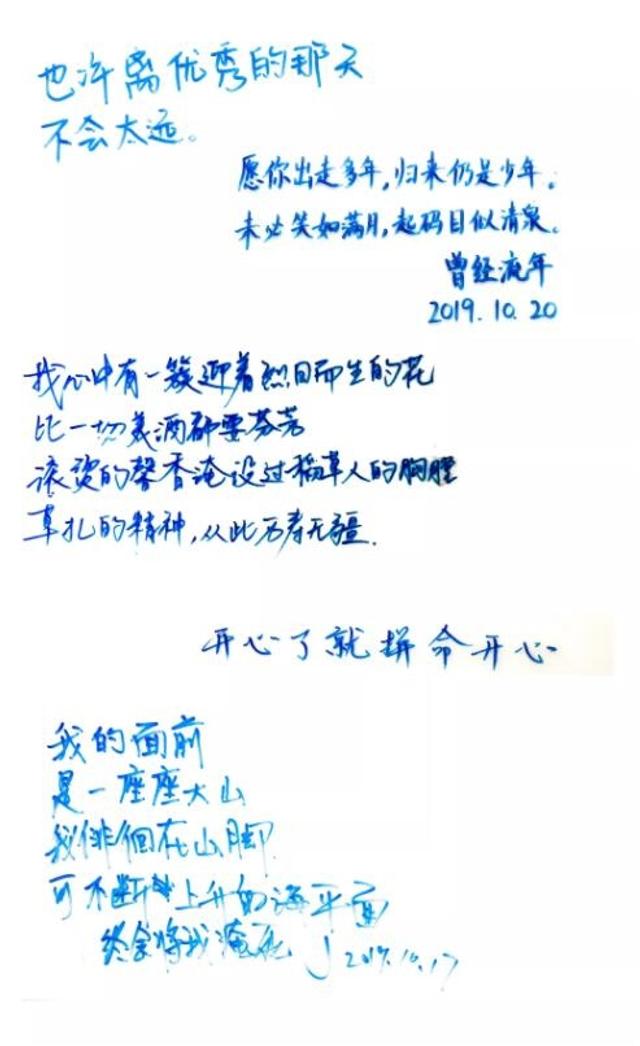 也许离优秀的那天
不会太远。
愿你出走多年,归来仍是少年。
未必笑如满月,起码目似清泉。
曾经流年
2019.10.20
我心中有一簇迎着烈日而生的花
比一切美酒都要芬芳
滚烫的馨香淹没过稻草人的胸膛
草扎的精神,从此万寿无疆.
开心了就拼命开心
我的面前
是一座座大山
我徘徊在山脚
可不断上升的海平面
终会将我淹死
2019.10.17